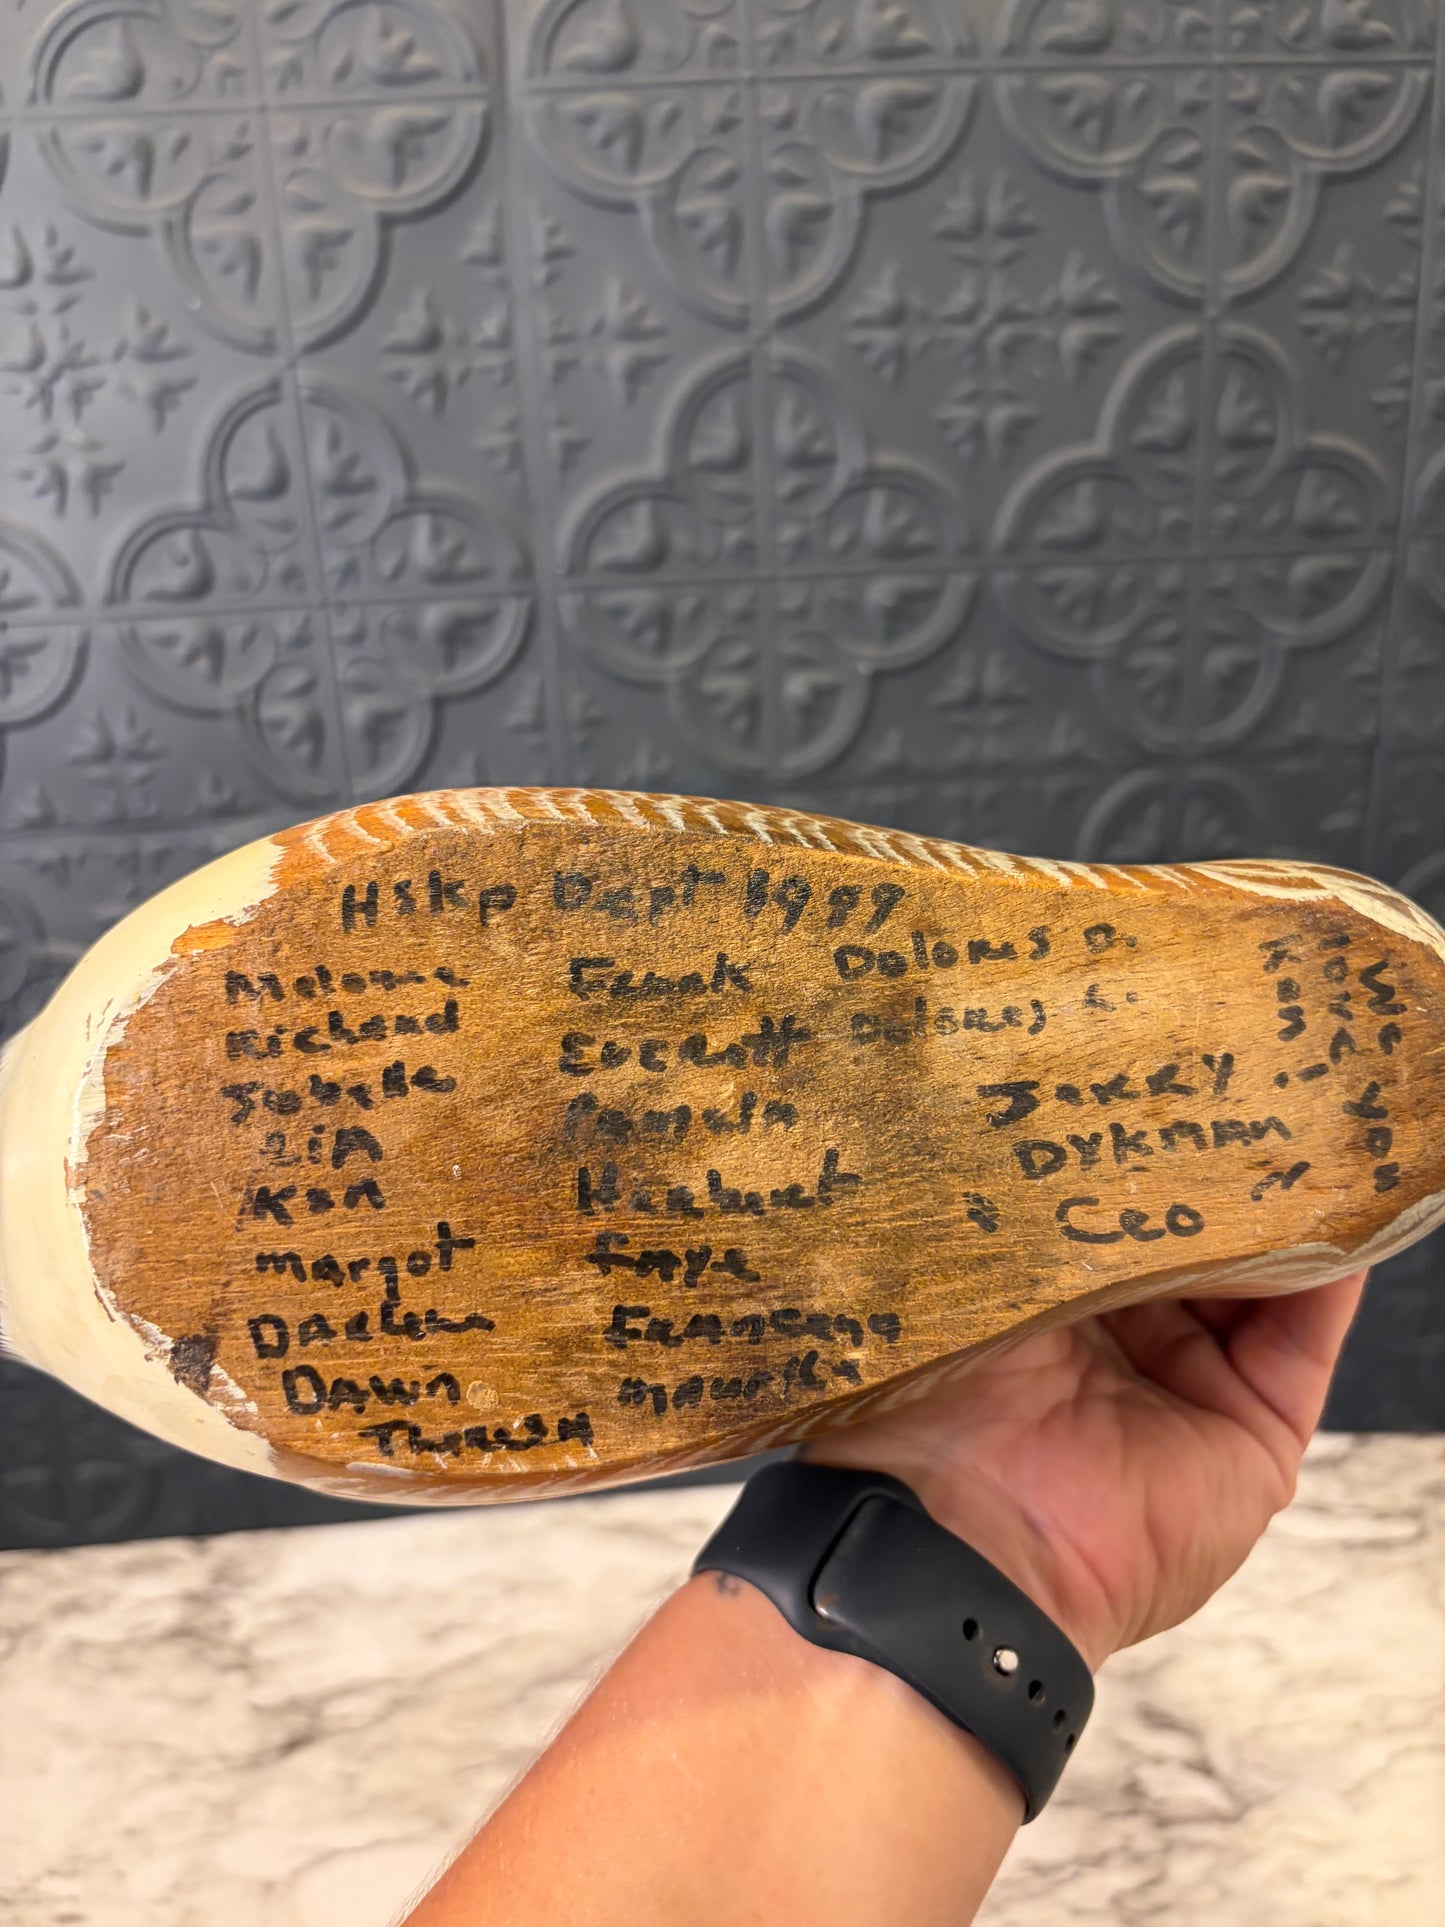 Hskp Dept 1989
Melome
Richard
Isabelle
LiA
Ken
margot
DARlene
DAwn
Theresa
Frank
Everett
Pamela
Herbert
Faye
Francean
Dolores D.
Dolores L.
Jerry
DYKMAn
Ceo
We You